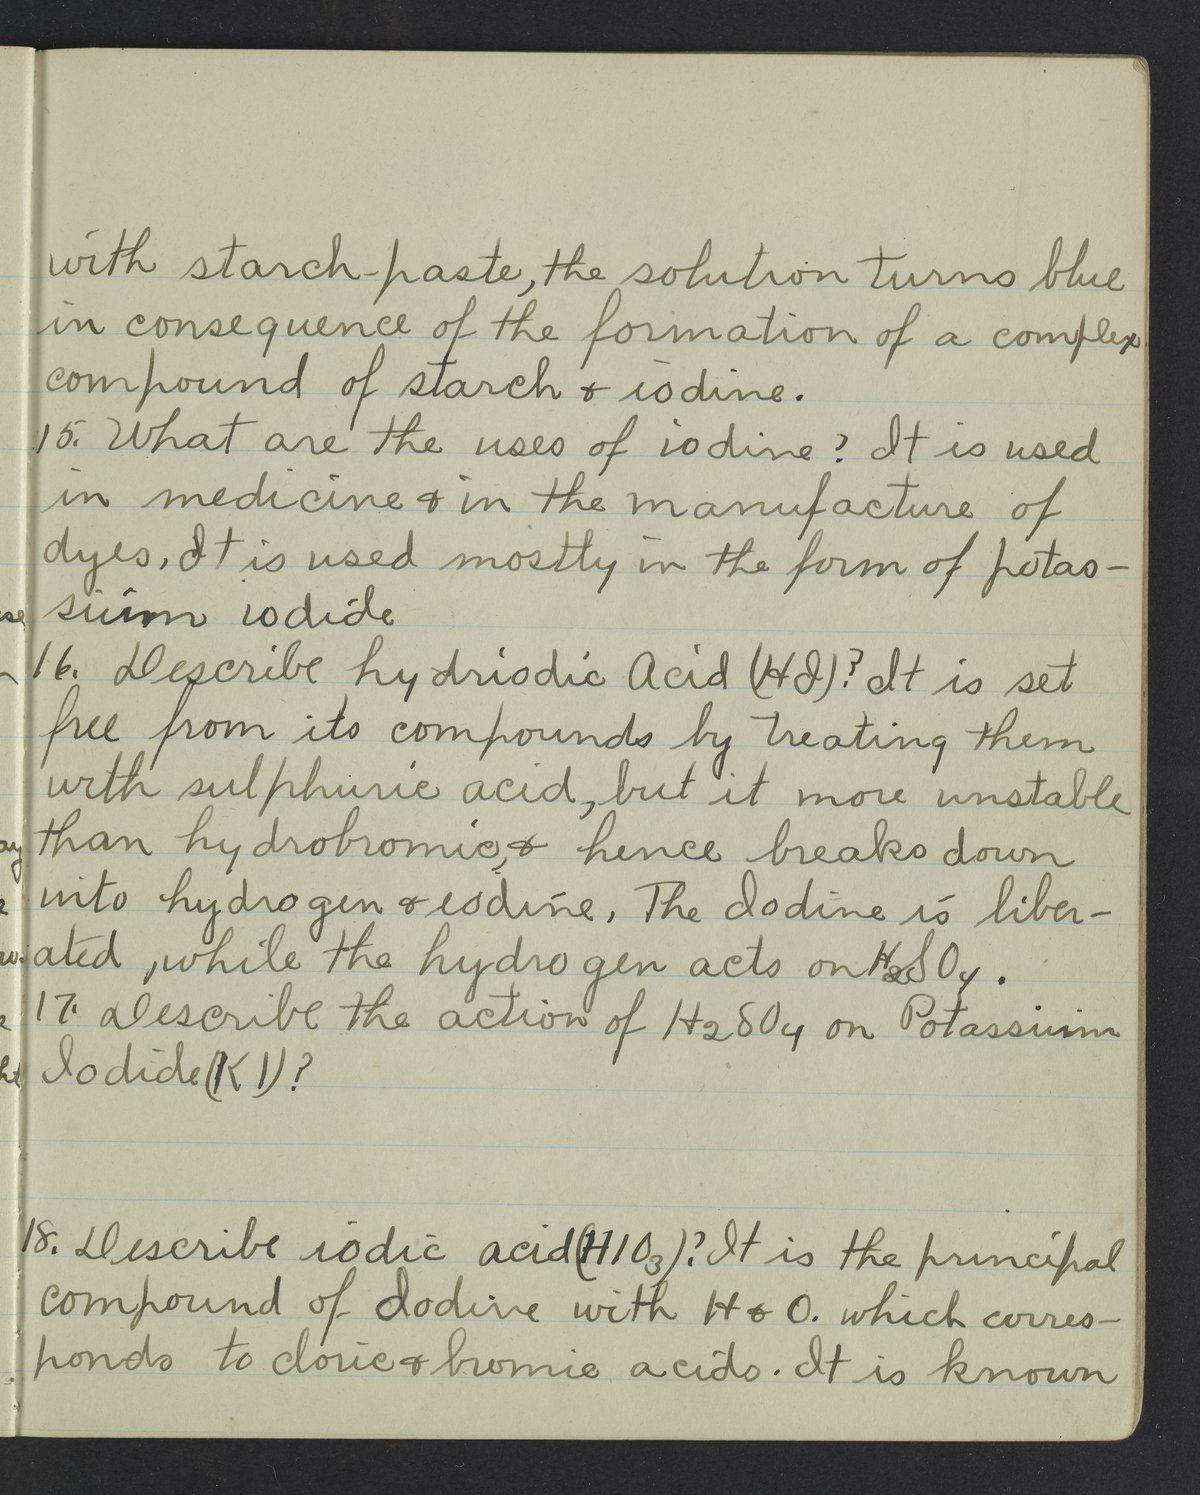 with starch-paste, the solution turns blue
in consequence of the formation of a complex
compound of starch & iodine.
15. What are the uses of iodine? It is used
in medicine & in the manufacture of
dyes. It is used mostly in the form of potas-
sium iodide
16. Describe hydriodic Acid (HI)? It is set
free from its compounds by treating them
with sulphuric acid, but it more unstable
than hydrobromic, & hence breaks down
into hydrogen & iodine. The Iodine is liber-
ated, while the hydrogen acts on H2SO4.
17. Describe the action of H2SO4 on Potassium
Iodide (KI)?
18. Describe iodic acid (HIO3)? It is the principal
compound of Iodine with H & O. which corres-
ponds to cloric & bromic acids. It is known